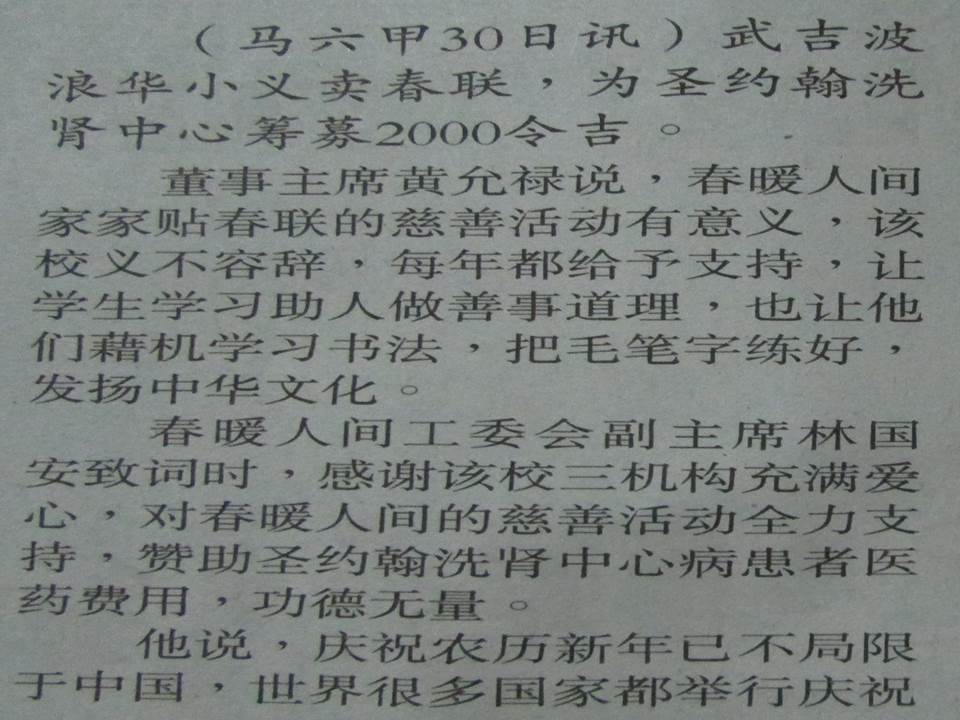 （马六甲30日讯）武吉波
浪华小义卖春联，为圣约翰洗
肾中心筹募2000令吉。
董事主席黄允禄说，春暖人间
家家贴春联的慈善活动有意义，该
校义不容辞，每年都给予支持，让
学生学习助人做善事道理，也让他
们藉机学习书法，把毛笔字练好，
发扬中华文化。
春暖人间工委会副主席林国
安致词时，感谢该校三机构充满爱
心，对春暖人间的慈善活动全力支
持，赞助圣约翰洗肾中心病患者医
药费用，功德无量。
他说，庆祝农历新年已不局限
于中国，世界很多国家都举行庆祝